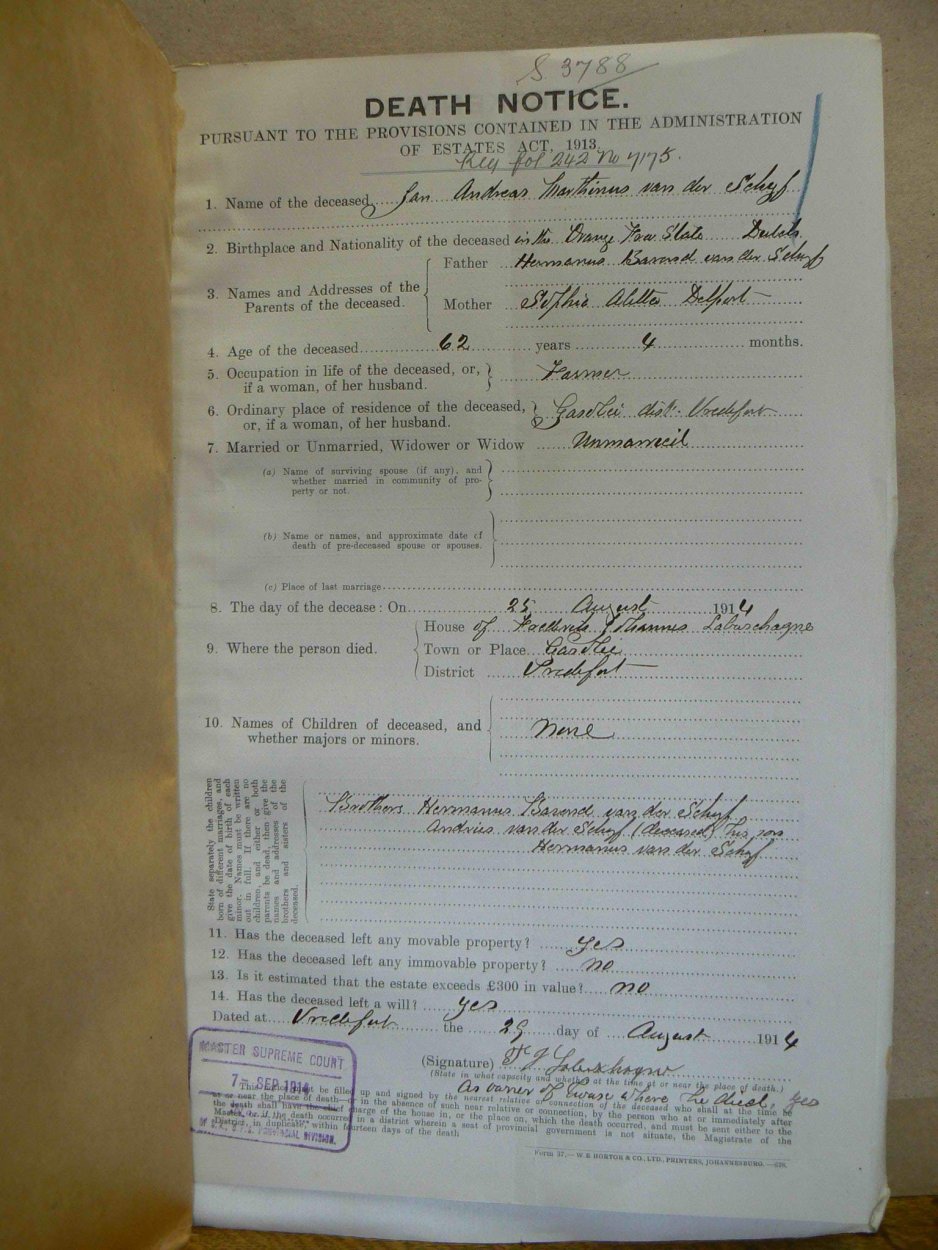 S 3788
DEATH NOTICE.
PURSUANT TO THE PROVISIONS CONTAINED IN THE ADMINISTRATION
OF ESTATES ACT, 1913.
Reg fol 242 No 7175.
1. Name of the deceased Jan Andreas Marthinus van der Schyf
2. Birthplace and Nationality of the deceased in the Orange Free State Dutch
3. Names and Addresses of the Parents of the deceased.
Father Hermanus Barend van der Schyf
Mother Sophia Aletta Delport
4. Age of the deceased 62 years 4 months.
5. Occupation in life of the deceased, or, if a woman, of her husband. Farmer
6. Ordinary place of residence of the deceased, or, if a woman, of her husband. dist. Vredefort
7. Married or Unmarried, Widower or Widow Unmarried
(a) Name of surviving spouse (if any), and
whether married in community of pro-
perty or not.
(b) Name or names, and approximate date of
death of pre-deceased spouse or spouses.
(c) Place of last marriage
8. The day of the decease: On 25 August 1914
9. Where the person died.
House of Frederik Johannes Labuschagne
Town or Place
District Vredefort
10. Names of Children of deceased, and
whether majors or minors. None
State separately the children
born of different marriages, and
give the date of birth of each
minor. Names must be written
out in full. If there are no
children, and either or both
parents be dead, then give the
names and addresses of the
brothers and sisters of the
deceased.
Brothers Hermanus Barend van der Schyf
Andries van der Schyf (deceased) his son
Hermanus van der Schyf
11. Has the deceased left any movable property? yes
12. Has the deceased left any immovable property? no
13. Is it estimated that the estate exceeds £300 in value? no
14. Has the deceased left a will? yes
Dated at Vredefort the 29 day of August 1914
(Signature) F J Labuschagne
(State in what capacity and whether at the time at or near the place of death.)
As owner of house where he died, yes
MASTER SUPREME COURT
7 - SEP 1914
PROVINCIAL DIVISION.
This must be filled up and signed by the nearest relative or connection of the deceased who shall at the time be
at or near the place of death—or in the absence of such near relative or connection, by the person who at or immediately after
the death shall have the chief charge of the house in, or the place on, which the death occurred, and must be sent either to the
Master, or if the death occurred in a district wherein a seat of provincial government is not situate, the Magistrate of the
District, in duplicate, within fourteen days of the death
Form 37.—W. E HORTOR & CO., LTD., PRINTERS, JOHANNESBURG.